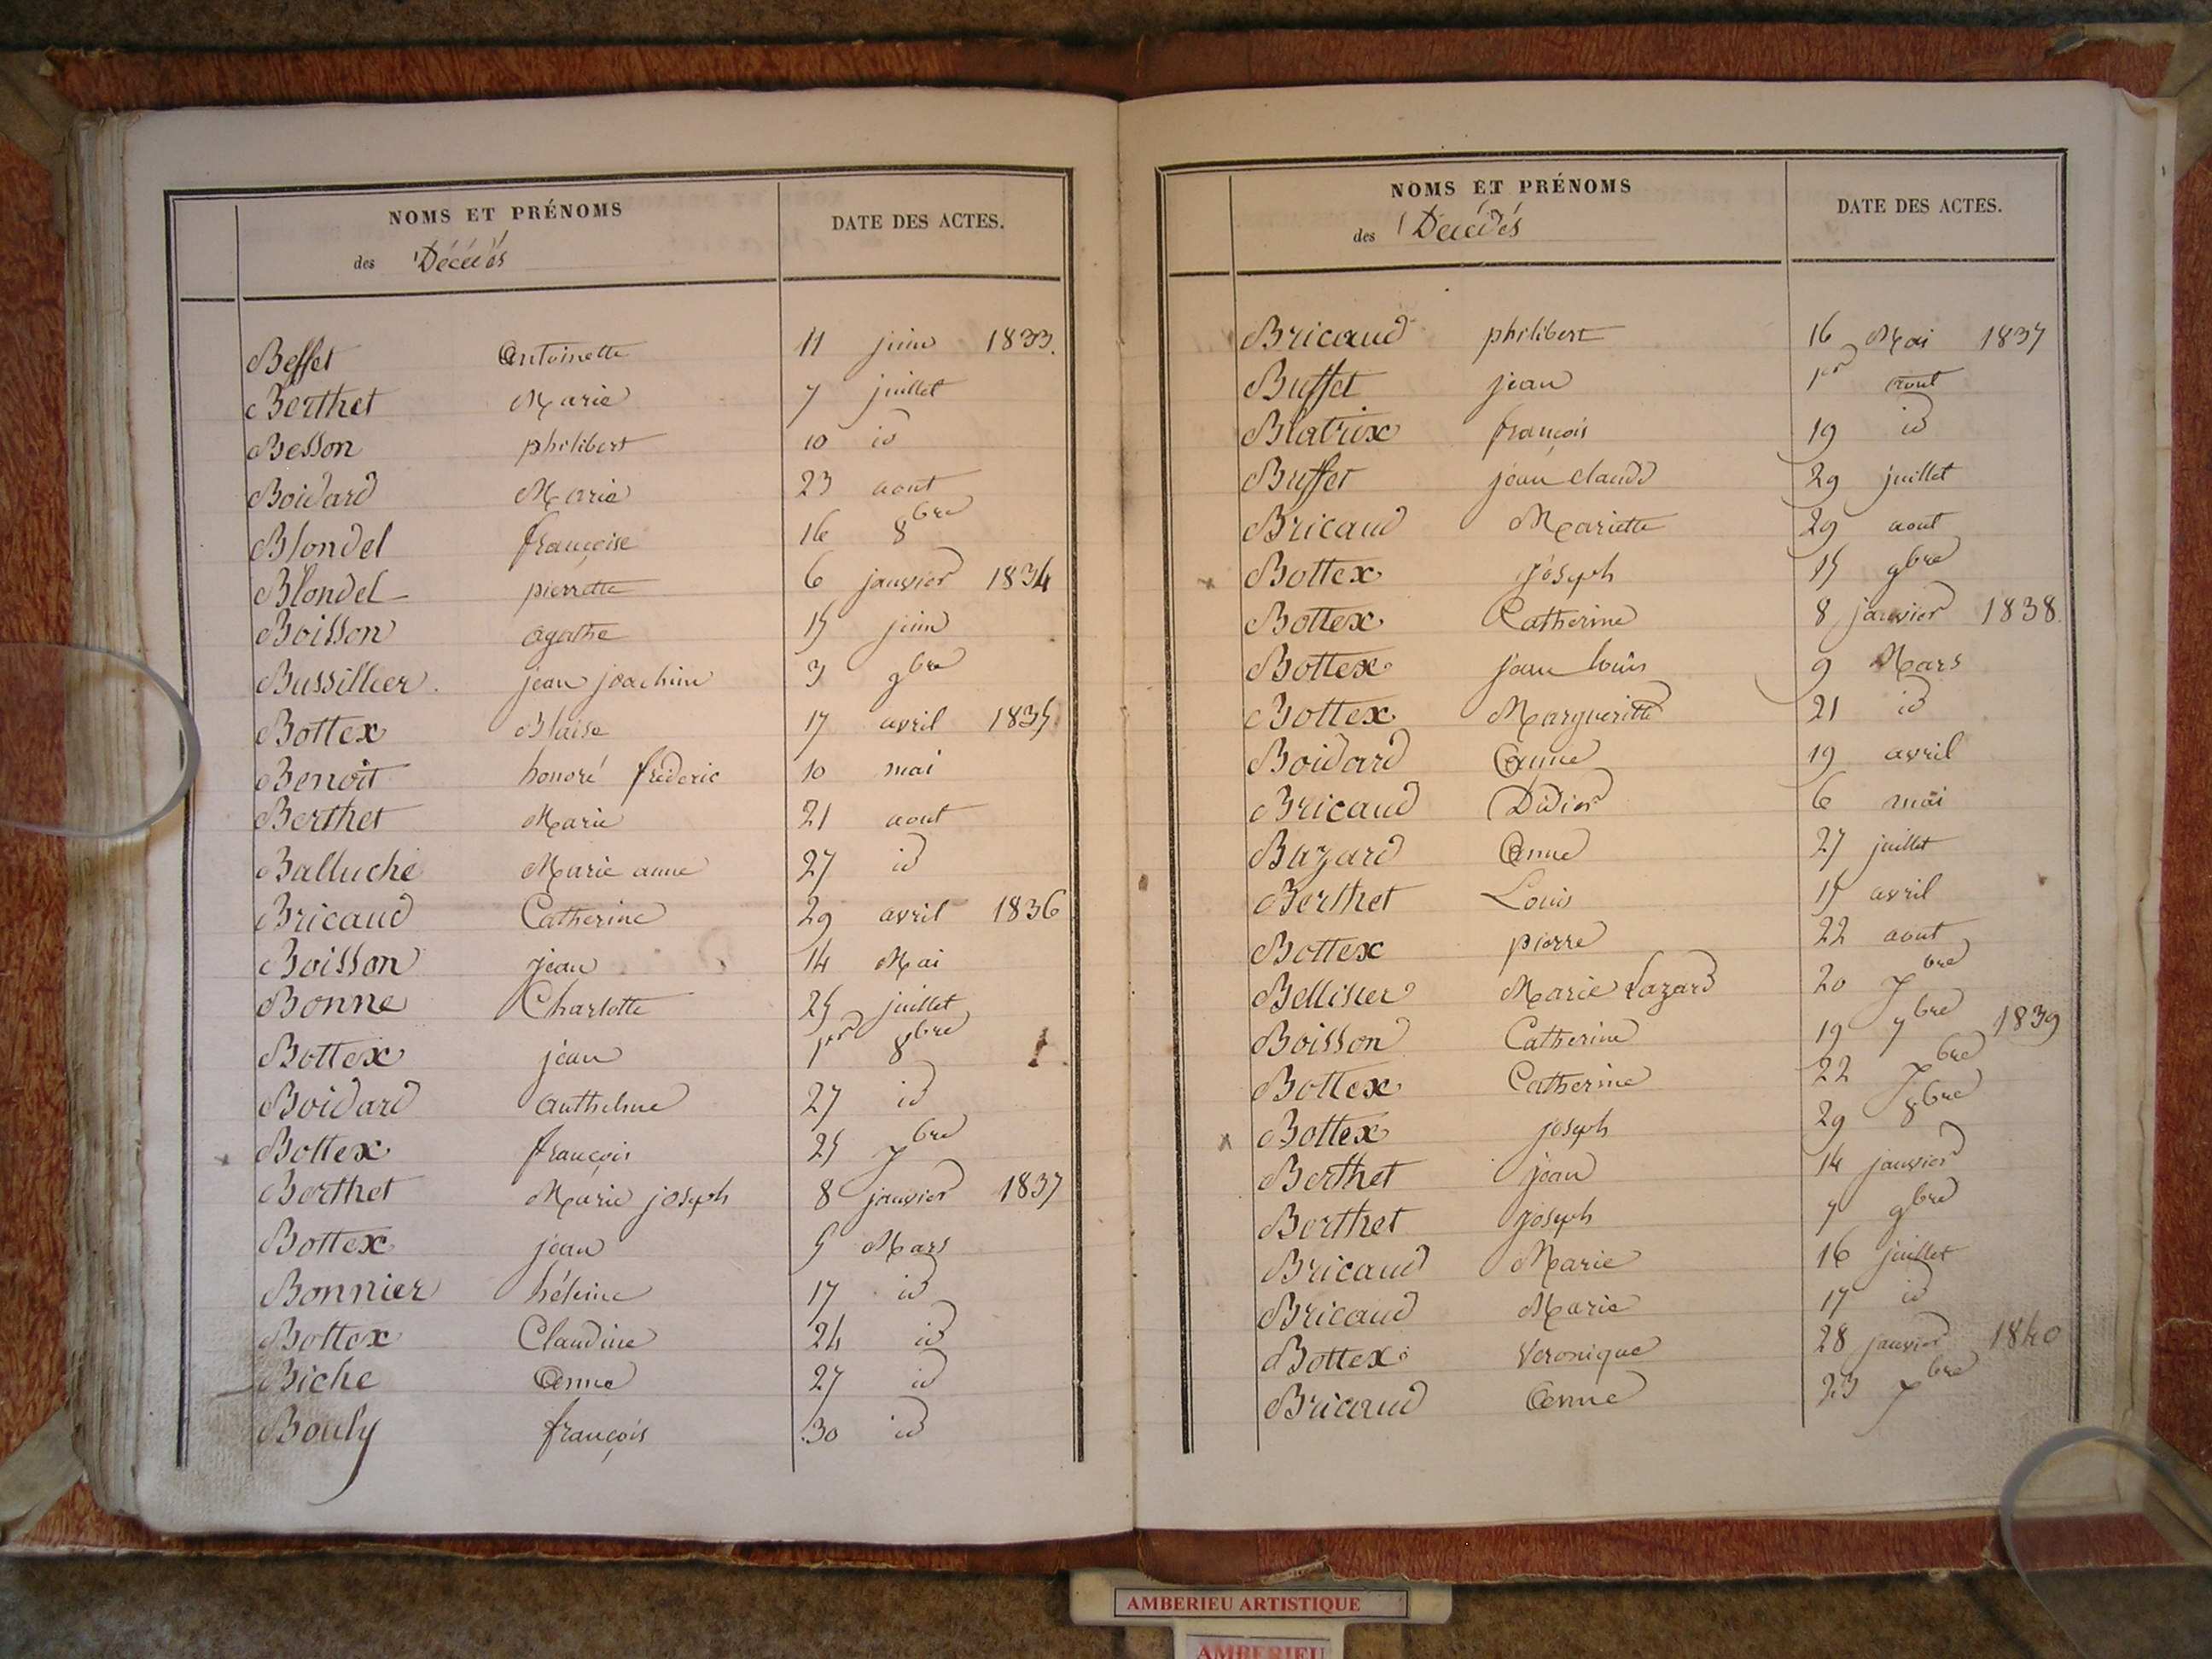 NOMS ET PRÉNOMS
des Décédés
DATE DES ACTES.
Beffet Antoinette 11 juin 1833.
Berthet Marie 7 juillet
Besson philibert 10 id
Boidard Marie 23 aout
Blondel françoise 16 8bre
Blondel pierrette 6 janvier 1834
Boisson agathe 15 juin
Bussillier. jean joachim 3 9bre
Bottex Blaise 17 avril 1835.
Benoit honoré fréderic 10 mai
Berthet Marie 21 aout
Balluche Marie anne 27 id
Bricaud Catherine 29 avril 1836
Boisson jean 14 Mai
Bonne Charlotte 25 juillet
Bottex jean 1er 8bre
Boidard anthelme 27 id
Bottex françois 25 7bre
Berthet Marie joseph 8 janvier 1837
Bottex jean 5 Mars
Bonnier héleine 17 id
Bottex Claudine 24 id
Biche Anne 27 id
Bouly françois 30 id
NOMS ET PRÉNOMS
des Décédés
DATE DES ACTES.
Bricaud philibert 16 Mai 1837
Buffet jean 1er aout
Blatrix françois 19 id
Buffet jean claude 29 juillet
Bricaud Mariette 29 aout
x Bottex joseph 15 9bre
Bottex Catherine 8 janvier 1838.
Bottex jean louis 9 Mars
Bottex Margueritte 21 id
Boidard Anne 19 avril
Bricaud Didier 6 mai
Bazard Anne 27 juillet
Berthet Louis 15 avril
Bottex pierre 22 aout
Bellisier Marie Lazard 20 7bre
Boisson Catherine 19 7bre 1839
Bottex Catherine 22 7bre
x Bottex joseph 29 8bre
Berthet jean 14 janvier
Berthet joseph 7 9bre
Bricaud Marie 16 juillet
Bricaud Marie 17 id
Bottex Veronique 28 janvier 1840
Bricaud Anne 23 7bre
AMBERIEU ARTISTIQUE
AMBERIEU